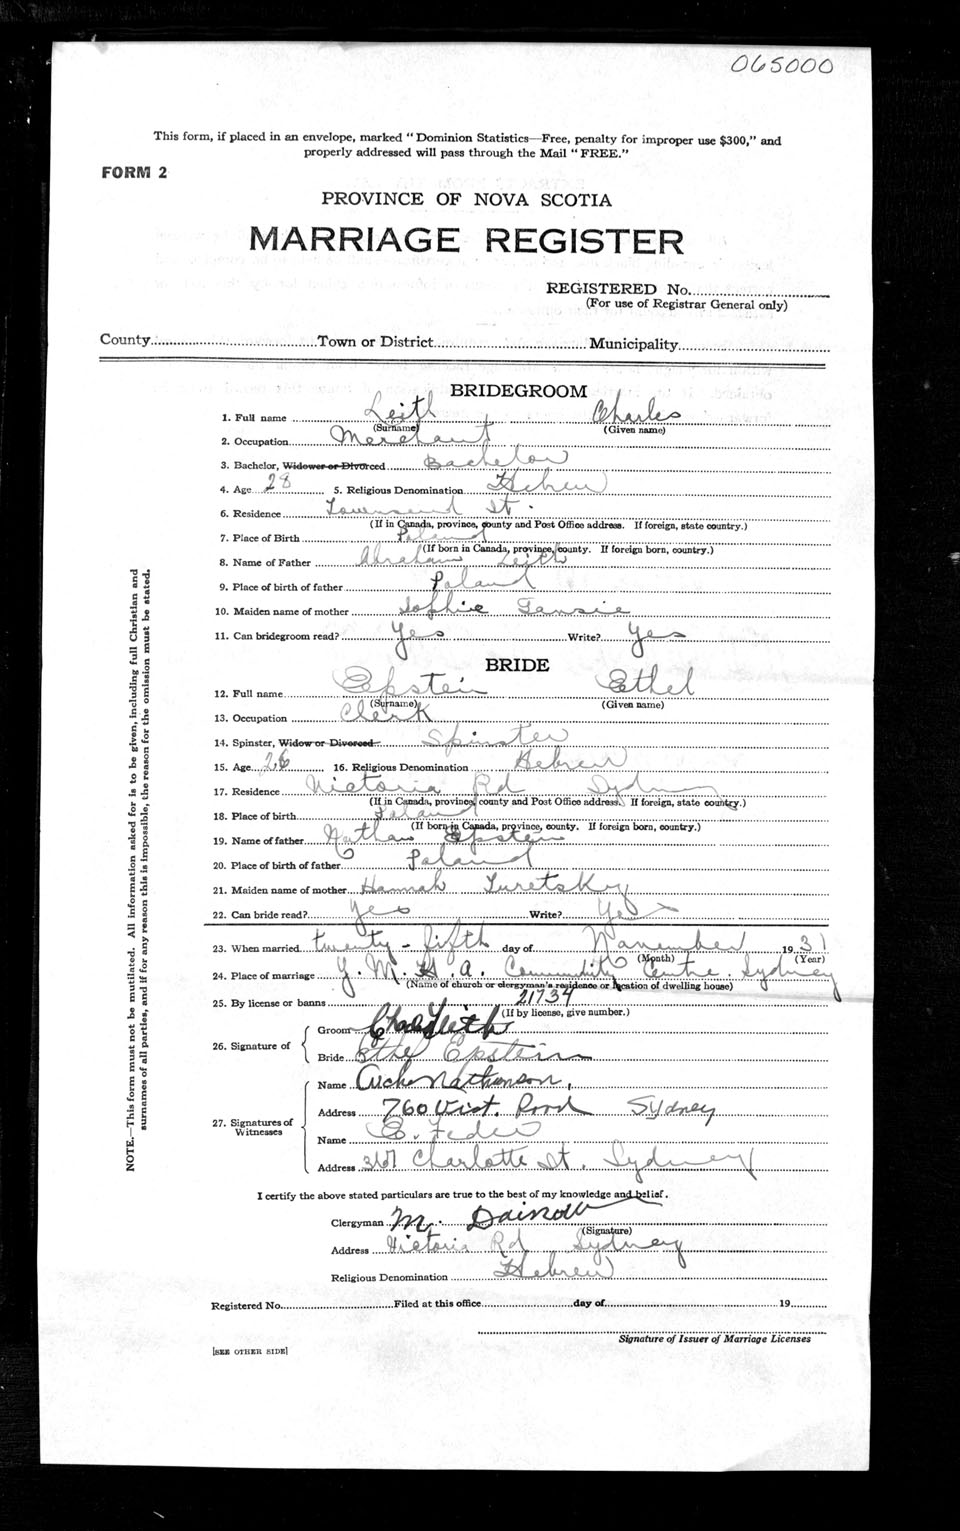 065000
This form, if placed in an envelope, marked "Dominion Statistics—Free, penalty for improper use $300," and
properly addressed will pass through the Mail "FREE."
FORM 2
PROVINCE OF NOVA SCOTIA
MARRIAGE REGISTER
REGISTERED No.
(For use of Registrar General only)
County Town or District Municipality
BRIDEGROOM
1. Full name Leith Charles
(Surname) (Given name)
2. Occupation Merchant
3. Bachelor, Widower or Divorced Bachelor
4. Age 28 5. Religious Denomination Hebrew
6. Residence Townsend St.
(If in Canada, province, county and Post Office address. If foreign, state country.)
7. Place of Birth Poland
(If born in Canada, province, county. If foreign born, country.)
8. Name of Father Abraham Leith
9. Place of birth of father Poland
10. Maiden name of mother Sophie
11. Can bridegroom read? Yes Write? Yes
BRIDE
12. Full name Epstein Ethel
(Surname) (Given name)
13. Occupation Clerk
14. Spinster, Widow or Divorced Spinster
15. Age 26 16. Religious Denomination Hebrew
17. Residence Victoria Rd Sydney
(If in Canada, province, county and Post Office address. If foreign, state country.)
18. Place of birth Poland
(If born in Canada, province, county. If foreign born, country.)
19. Name of father Nathan Epstein
20. Place of birth of father Poland
21. Maiden name of mother Hannah Turetsky
22. Can bride read? Yes Write? Yes
23. When married twenty-fifth day of November 1931
(Month) (Year)
24. Place of marriage Y.M.H.A. Community Centre. Sydney
(Name of church or clergyman's residence or location of dwelling house)
25. By license or banns 21734
(If by license, give number.)
26. Signature of
Groom Charles Leith
Bride Ethel Epstein
27. Signatures of
Witnesses
Name Nathanson,
Address 760 Vict. Road Sydney
Name E. Feder
Address 367 Charlotte St. Sydney
I certify the above stated particulars are true to the best of my knowledge and belief.
Clergyman M. Dainow
(Signature)
Address Victoria Rd Sydney
Religious Denomination Hebrew
Registered No. Filed at this office day of 19
Signature of Issuer of Marriage Licenses
[SEE OTHER SIDE]
NOTE.—This form must not be mutilated. All information asked for is to be given, including full Christian and
surnames of all parties, and if for any reason this is impossible, the reason for the omission must be stated.